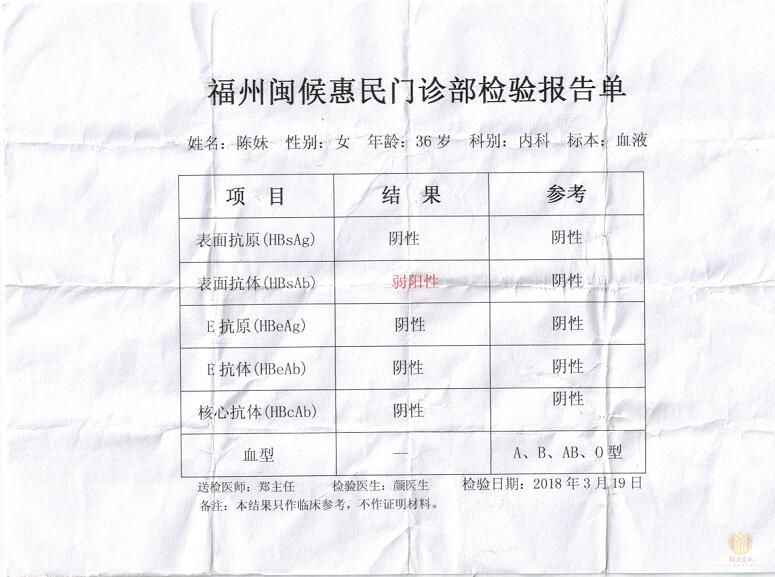 福州闽候惠民门诊部检验报告单
姓名：陈妹 性别：女 年龄：36岁 科别：内科 标本：血液
项 目 结 果 参考
表面抗原(HBsAg) 阴性 阴性
表面抗体(HBsAb) 弱阳性 阴性
E抗原(HBeAg) 阴性 阴性
E抗体(HBeAb) 阴性 阴性
核心抗体(HBcAb) 阴性 阴性
血型 — A、B、AB、O型
送检医师：郑主任 检验医生：颜医生 检验日期：2018年3月19日
备注：本结果只作临床参考，不作证明材料。